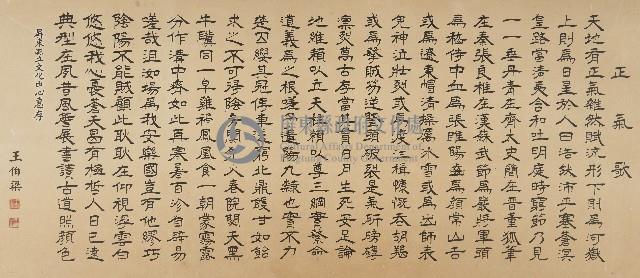 正氣歌
天地有正氣雜然賦流形下則為河嶽
上則為日星於人曰浩然沛乎塞蒼溟
皇路當清夷含和吐明庭時窮節乃見
一一垂丹青在齊太史簡在晉董狐筆
在秦張良椎在漢蘇武節為嚴將軍頭
為嵇侍中血為張睢陽齒為顏常山舌
或為遼東帽清操厲冰雪或為出師表
鬼神泣壯烈或為渡江楫慷慨吞胡羯
或為擊賊笏逆豎頭破裂是氣所磅礴
凜烈萬古存當其貫日月生死安足論
地維賴以立天柱賴以尊三綱實繫命
道義為之根嗟予遘陽九隸也實不力
楚囚纓其冠傳車送窮北鼎鑊甘如飴
求之不可得陰房闃鬼火春院閟天黑
牛驥同一皁雞棲鳳凰食一朝蒙霧露
分作溝中瘠如此再寒暑百沴自辟易
嗟哉沮洳場為我安樂國豈有他繆巧
陰陽不能賊顧此耿耿在仰視浮雲白
悠悠我心憂蒼天曷有極哲人日已遠
典型在夙昔風簷展書讀古道照顏色
屏東縣立文化中心惠存
王伯梁
屏東縣政府文化處
Cultural Affairs Department of
Pingtung County Government